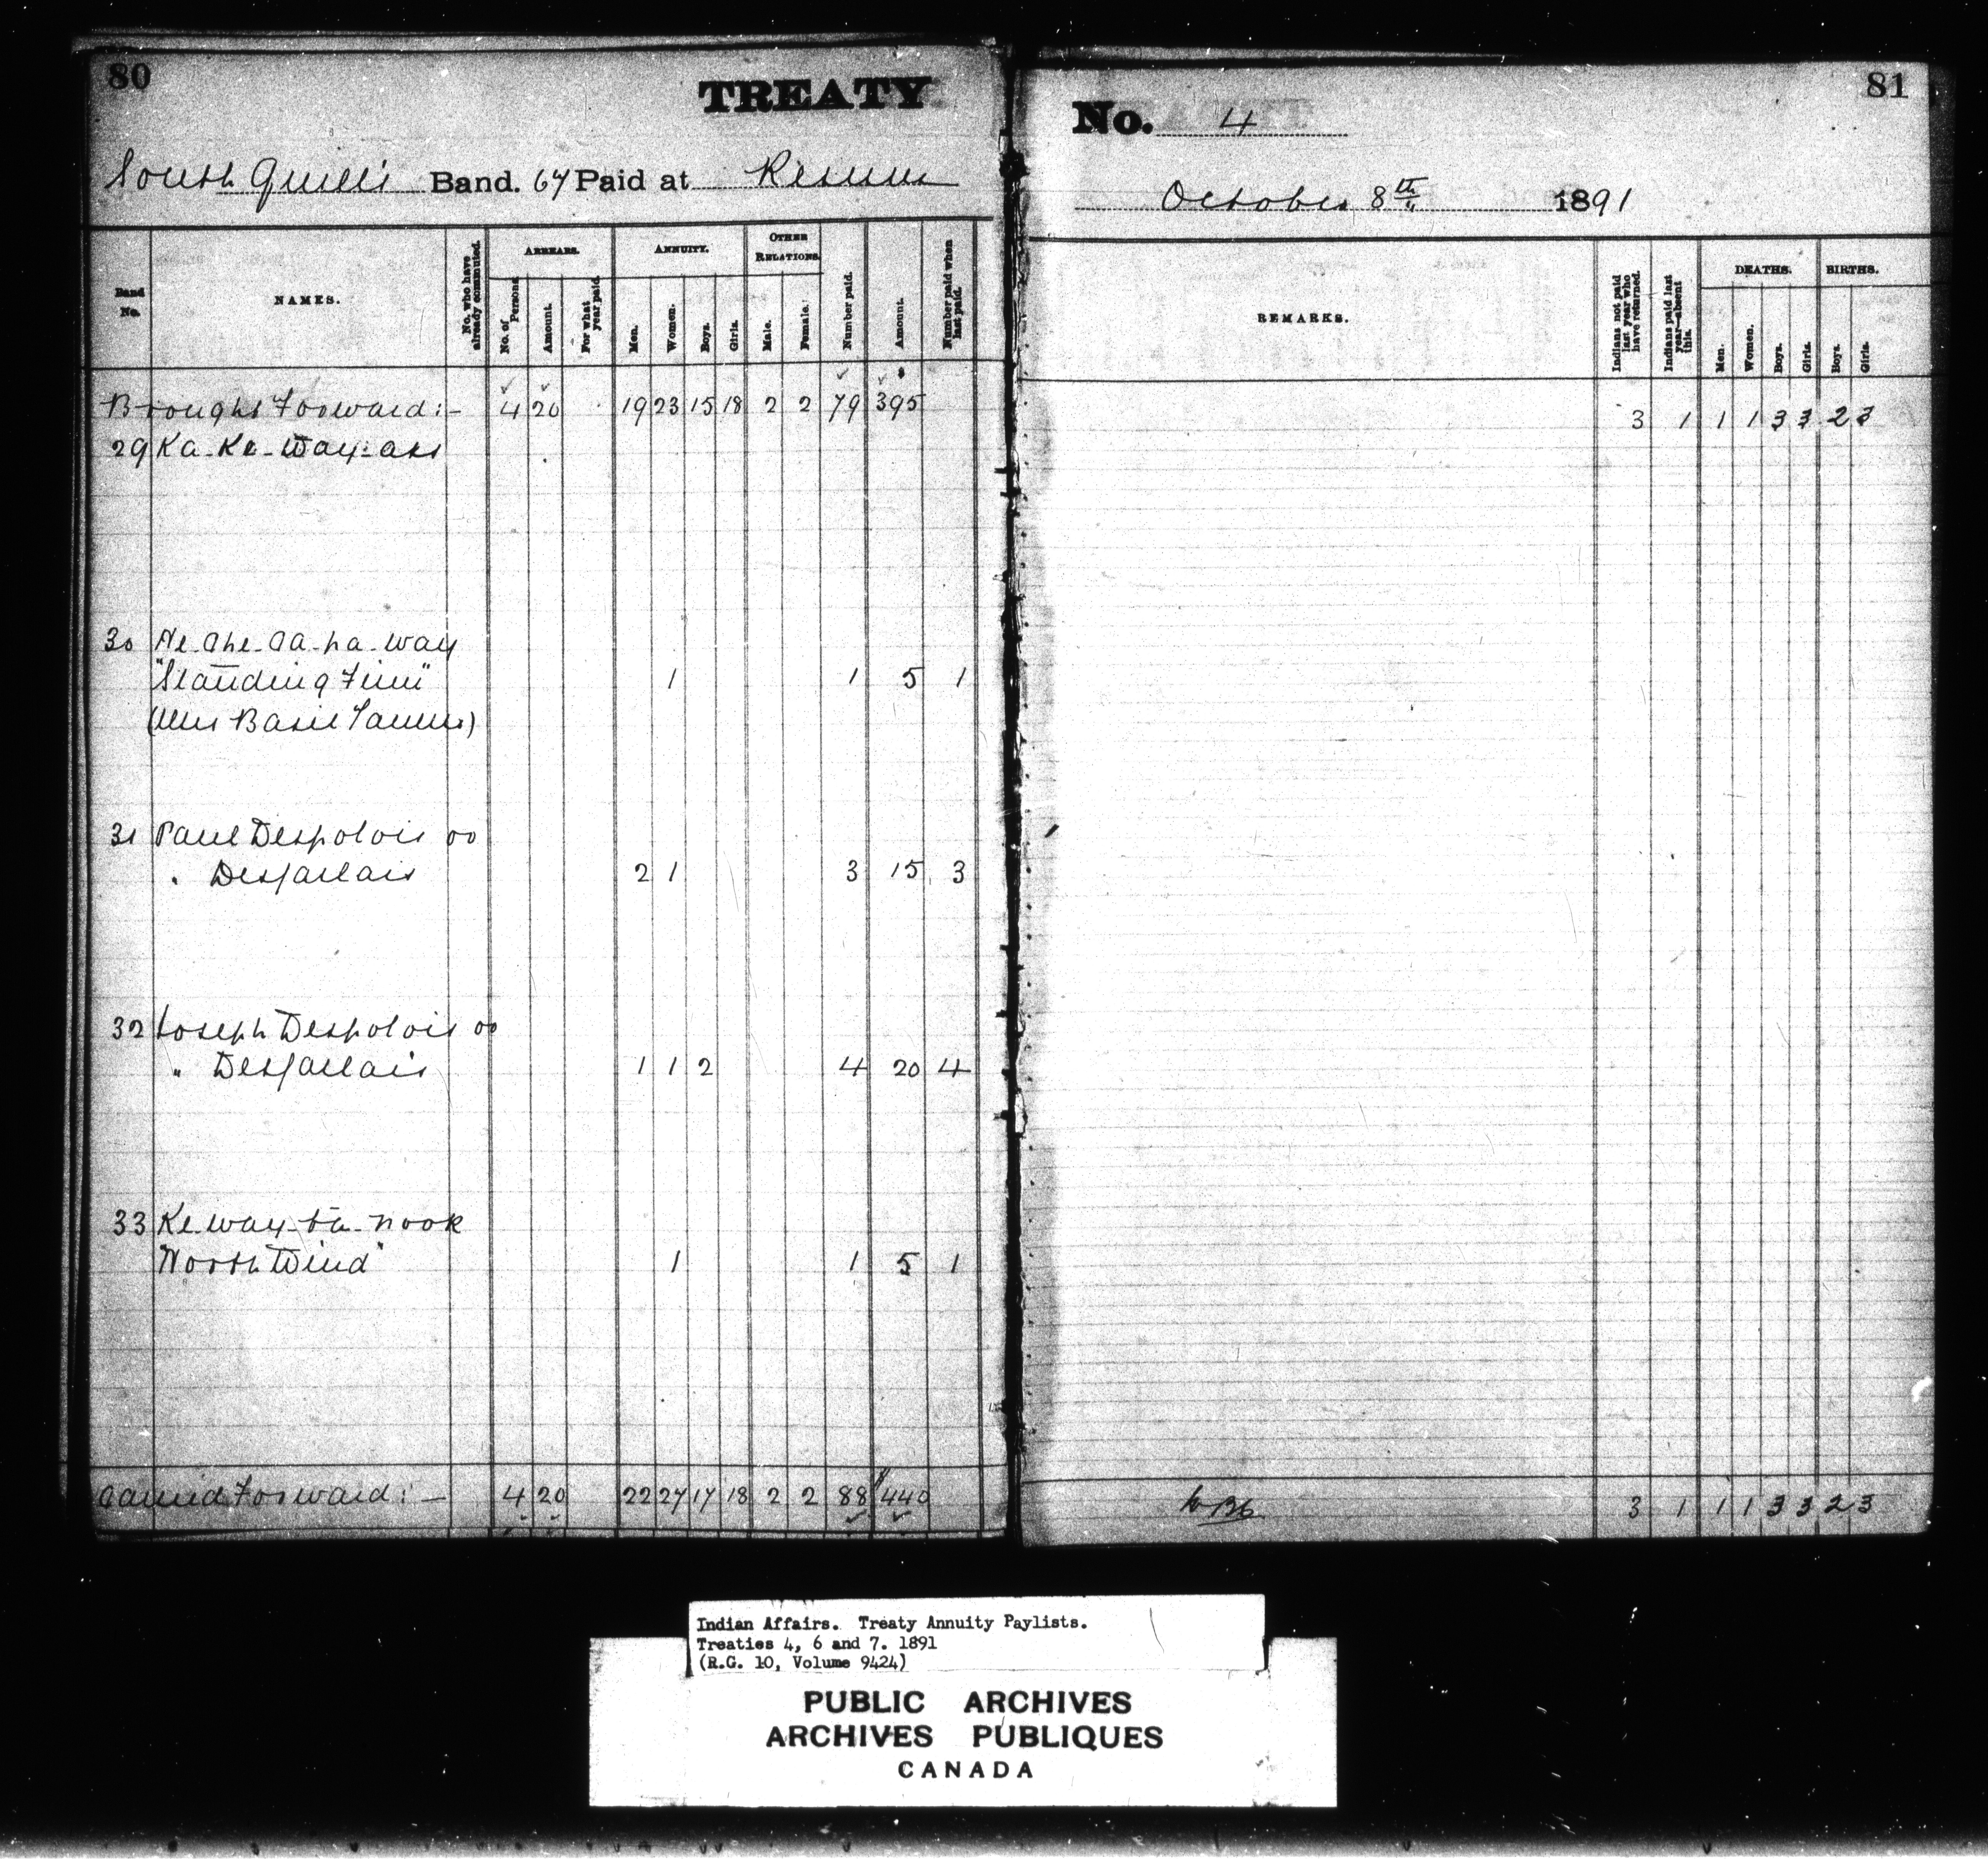 80
TREATY
South Quill's Band. 67 Paid at Reserve
Band No.
NAMES.
No. who have already commuted.
ARREARS.
No. of Persons.
Amount.
For what year paid.
ANNUITY.
Men.
Women.
Boys.
Girls.
OTHER RELATIONS.
Male.
Female.
Number paid.
Amount.
Number paid when last paid.
Brought Forward:- 4 20 19 23 15 18 2 2 79 395
29 Ka-Ke-Way-ass
30
"Standing Firm" 1 1 5 1
(Mrs Basil Tanner)
31 Paul Despolois or
" Desjarlais 2 1 3 15 3
32 Joseph Despolois or
" Desjarlais 1 1 2 4 20 4
33 Ke-way-ta-nook
"North Wind" 1 1 5 1
Carried Forward:- 4 20 22 27 17 18 2 2 88 $440
81
No. 4
October 8th 1891
REMARKS.
Indians not paid last year who have returned.
Indians paid last year—absent this.
DEATHS.
Men.
Women.
Boys.
Girls.
BIRTHS.
Boys.
Girls.
3 1 1 1 3 3 2 3
3 1 1 1 3 3 2 3
Indian Affairs. Treaty Annuity Paylists.
Treaties 4, 6 and 7. 1891
(R.G. 10, Volume 9424)
PUBLIC ARCHIVES
ARCHIVES PUBLIQUES
CANADA